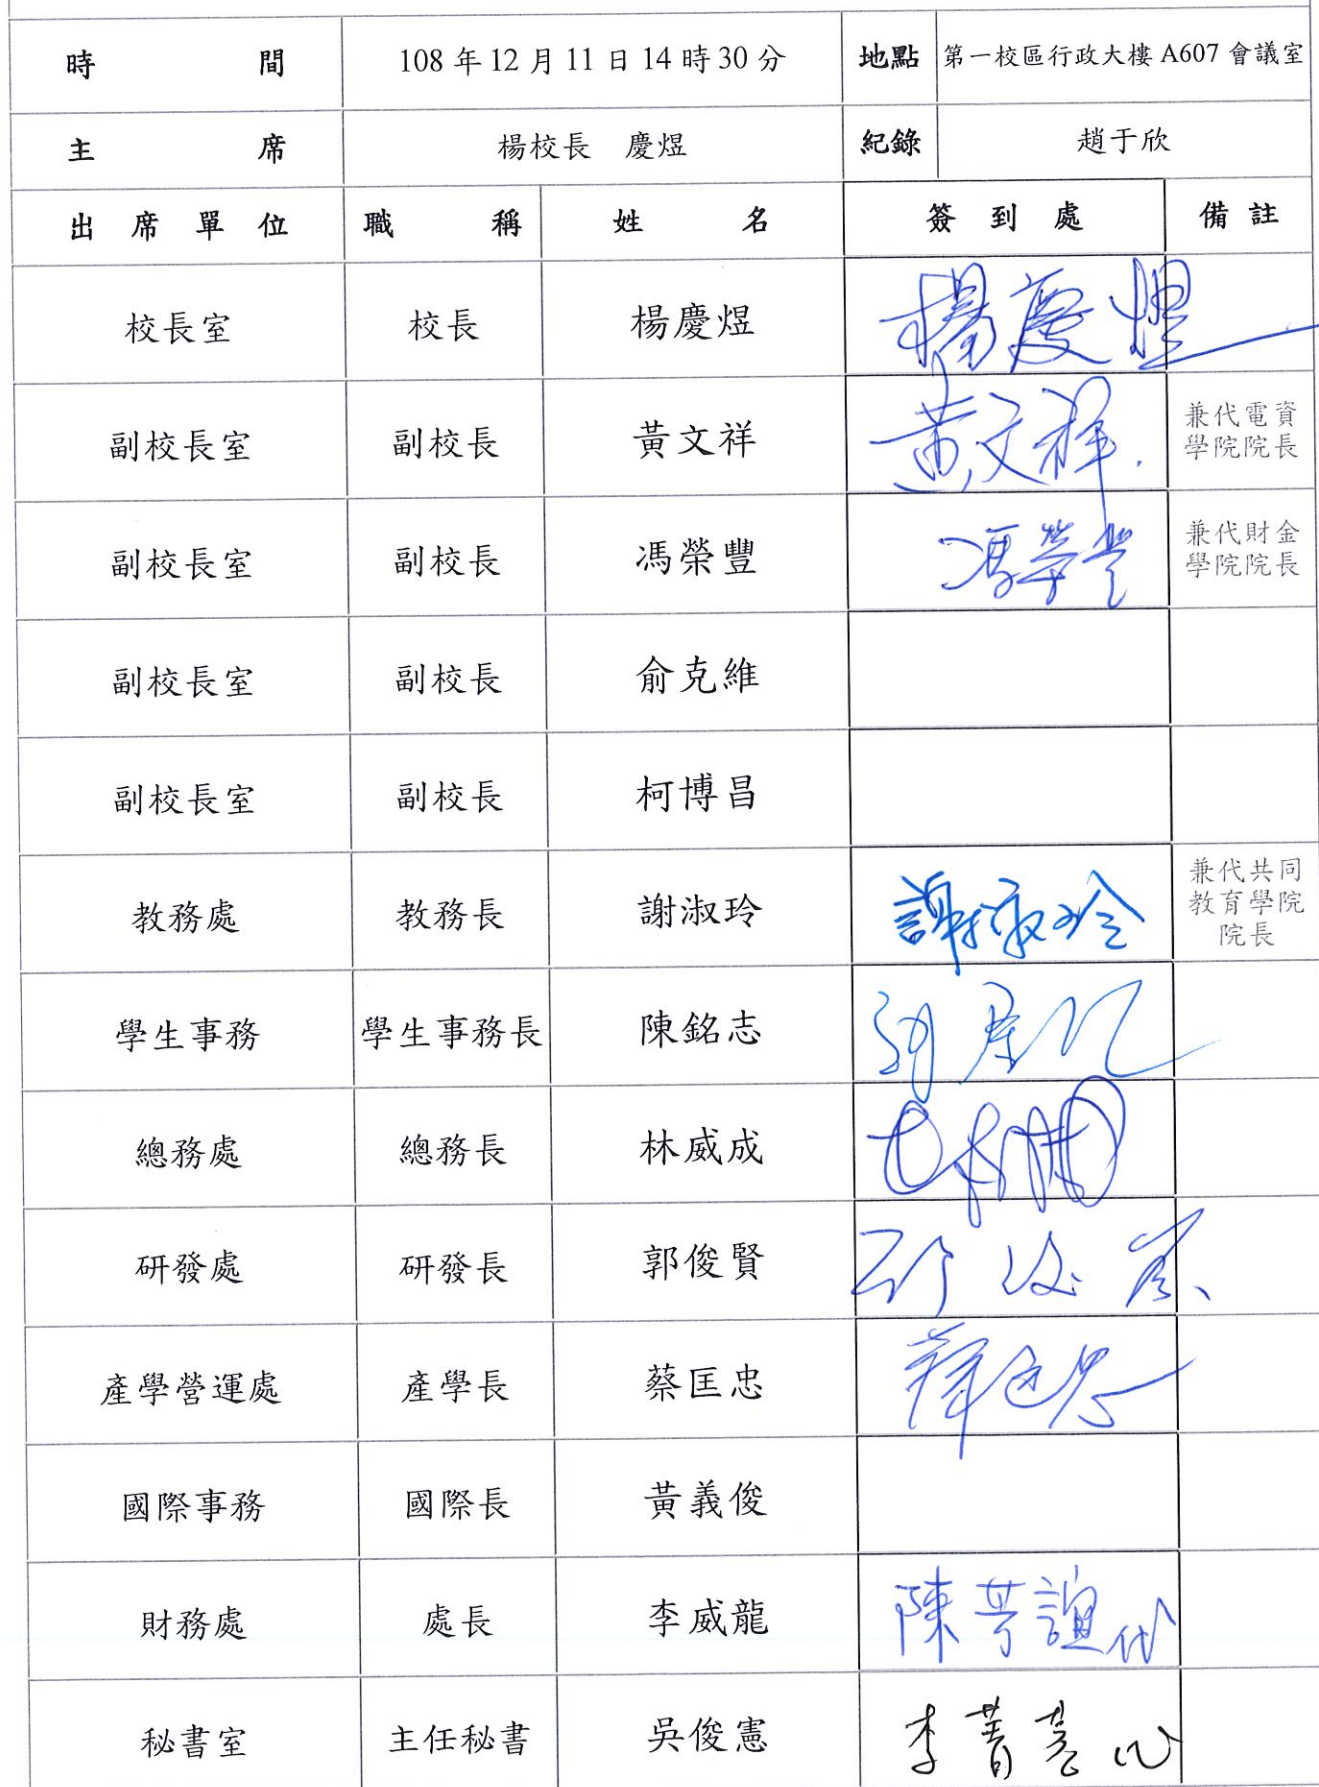 時間 108 年 12 月 11 日 14 時 30 分 地點 第一校區行政大樓 A607 會議室
主席 楊校長 慶煜 紀錄 趙于欣
出席單位 職稱 姓名 簽到處 備註
校長室 校長 楊慶煜 楊慶煜
副校長室 副校長 黃文祥 黃文祥 兼代電資
學院院長
副校長室 副校長 馮榮豐 馮榮豐 兼代財金
學院院長
副校長室 副校長 俞克維
副校長室 副校長 柯博昌
教務處 教務長 謝淑玲 謝淑玲 兼代共同
教育學院
院長
學生事務 學生事務長 陳銘志
總務處 總務長 林威成
研發處 研發長 郭俊賢
產學營運處 產學長 蔡匡忠
國際事務 國際長 黃義俊
財務處 處長 李威龍 陳芎誼代
秘書室 主任秘書 吳俊憲